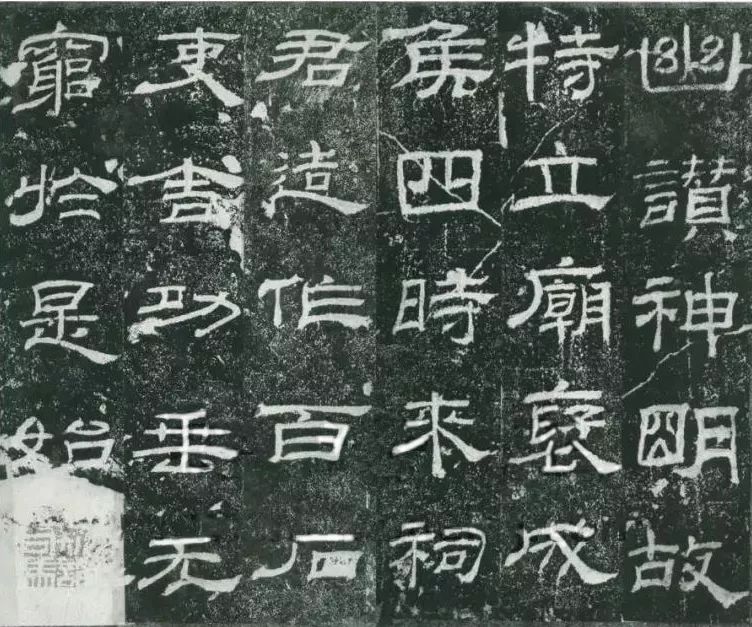 幽讚神明故
特立廟褒成
矦四時來祠
君造作百石
吏舍功垂无
窮於是始